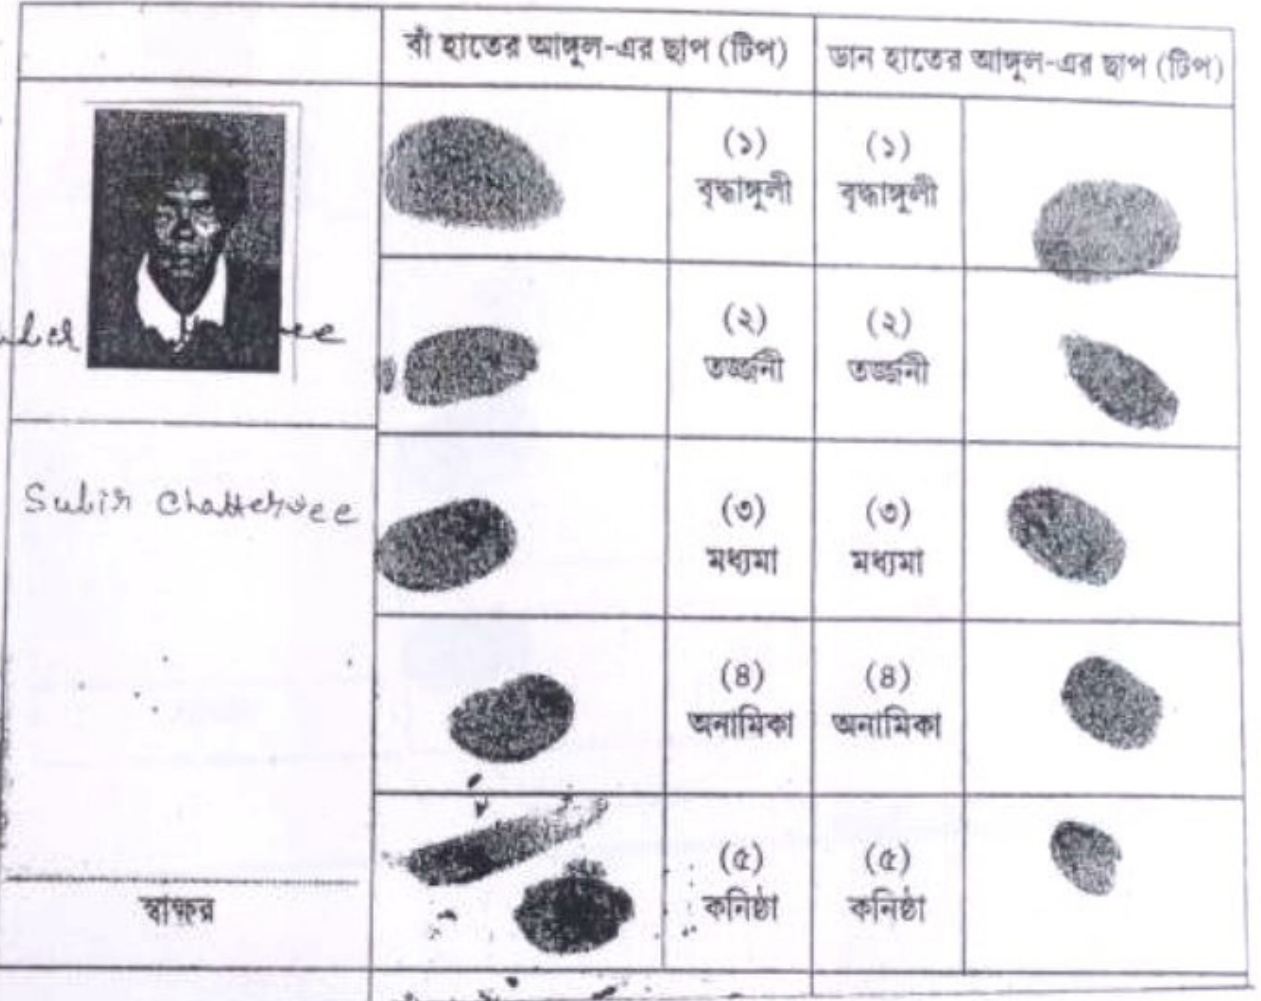 বাঁ হাতের আঙ্গুল-এর ছাপ (টিপ)
ডান হাতের আঙ্গুল-এর ছাপ (টিপ)
(১)
বৃদ্ধাঙ্গুলী
(১)
বৃদ্ধাঙ্গুলী
(২)
তর্জ্জনী
(২)
তর্জ্জনী
Subir Chatterjee
(৩)
মধ্যমা
(৩)
মধ্যমা
(৪)
অনামিকা
(৪)
অনামিকা
(৫)
কনিষ্ঠা
(৫)
কনিষ্ঠা
স্বাক্ষর